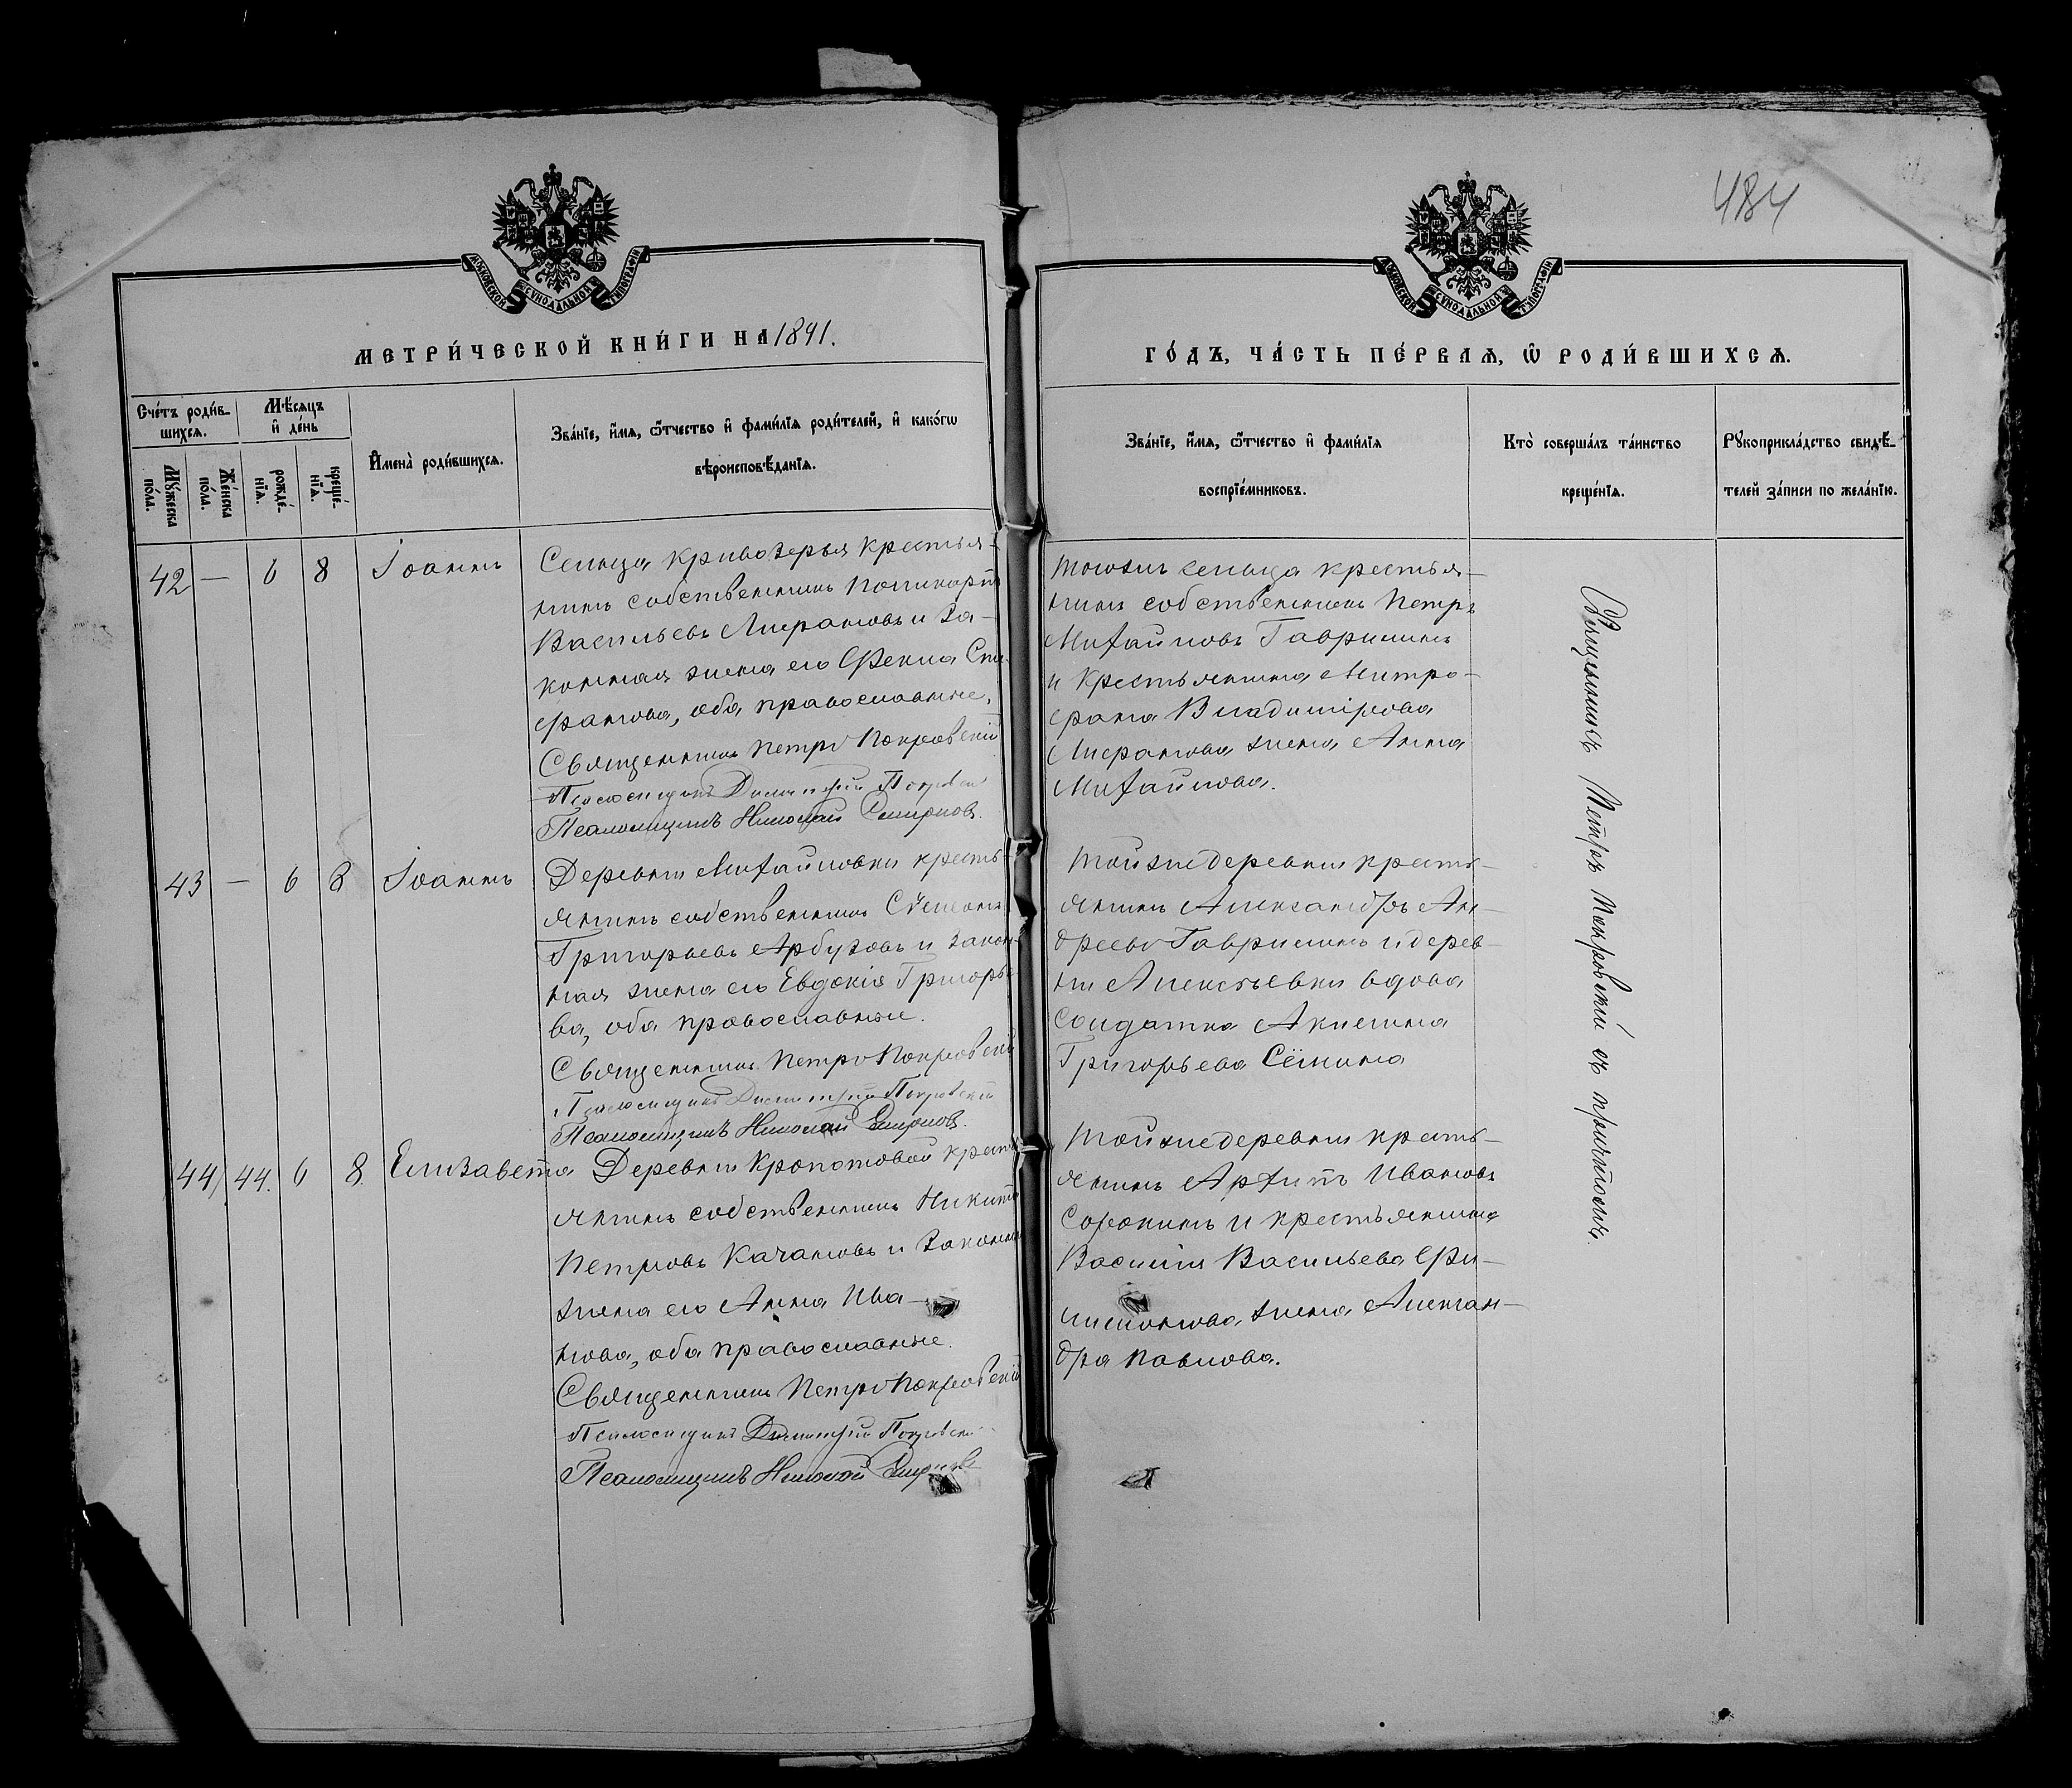 484
МОСКОВСКОЙ СѴНОДАЛЬНОЙ ТѴПОГРАФІИ
МОСКОВСКОЙ СѴНОДАЛЬНОЙ ТѴПОГРАФІИ
МЕТРИ́ЧЕСКОЙ КНИ́ГИ НА 1891.
ГО́ДЪ, ЧА́СТЬ ПЕ́РВАѦ, Ѡ҆ РОДИ́ВШИХСѦ.
Сче́тъ роди́в-
шихсѧ.
Мѣ́сѧцъ
и҆ де́нь
Мꙋ́жеска
по́ла.
Же́нска
по́ла.
рожде́-
нїѧ.
креще́-
нїѧ.
И҆мена̀ роди́вшихсѧ.
Зва́нїе, и҆́мѧ, ѻ҆́тчество и҆ фами́лїѧ роди́телей, и҆ како́гѡ
вѣроисповѣ́данїѧ.
Зва́нїе, и҆́мѧ, ѻ҆́тчество и҆ фами́лїѧ
воспрїе́мниковъ.
Кто̀ соверша́лъ та́инство
креще́нїѧ.
Рꙋкоприкла́дство свидѣ́-
телей за́писи по жела́нїю.
42 — 6 8 Іоаннъ
Сельца Кривозерья крестья-
нинъ собственникъ Поликарпъ
Васильевъ Лифановъ и за-
конная жена его Фекла Сте-
фанова, оба православные.
Священникъ Петръ Покровскій
Псаломщикъ Димитрій Покровскій
Псаломщикъ Николай Смирновъ.
тогоже сельца крестья-
нинъ собственникъ Петръ
Михайловъ Гавришинъ
и крестьянина Митро-
фана Владимірова
Лифанова жена Анна
Михайлова.
43 — 6 8 Іоаннъ
Деревни Михайловки кресть-
янинъ собственникъ Сѵмеонъ
Григорьевъ Арбузовъ и закон-
ная жена его Евдокія Григорье-
ва, оба православные.
Священникъ Петръ Покровскій
Псаломщикъ Димитрій Покровскій
Псаломщикъ Николай Смирновъ.
тойже деревни кресть-
янинъ Александръ Ан-
дреевъ Гавришинъ и дерев-
ни Алексѣевки вдова
солдатка Акилина
Григорьева Сёмина
44 44. 6 8. Елизавета
Деревни Кропотовой кресть-
янинъ собственникъ Никита
Петровъ Качановъ и законная
жена его Анна Ива-
нова, оба православные.
Священникъ Петръ Покровскій
Псаломщикъ Димитрій Покровскій
Псаломщикъ Николай Смирновъ
тойже деревни кресть-
янинъ Архипъ Ивановъ
Сорокинъ и крестьянина
Василія Васильева Фи-
лимонова жена Алексан-
дра Павлова.
Священникъ Петръ Покровскій съ причтомъ.